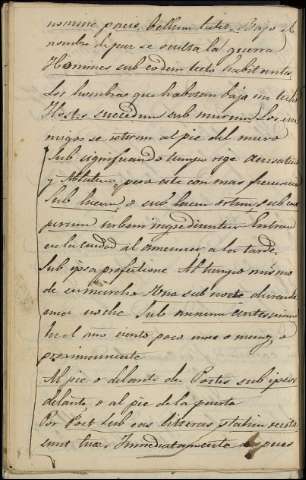 nomine pacis bellum latet. Bajo el
nombre de paz se oculta la guerra
Homines sub eodem tecto habitantes
Los hombres que habitan bajo un techo
Hostes succedunt sub murum Los ene
migos se retiran al pie del muro
Sub significando tiempo rige acusativo
y Ablativo, pero este con mas frecuencia
Sub lucem, o sub lucis ortum, sub ves
perum urbem ingrediuntur Entran
en la ciudad al amanecer a la tarde.
Sub ipsa profectione Al tiempo mismo
de su marcha Una sub nocte durante
una noche Sub annum centesimum
hacia el año ciento poco mas o menos, o
proximamente
Al pie o delante de Portas sub ipsas
delante, o al pie de la puerta
Por Post Sub eas litteras statim recita
sunt tuæ Inmediatamente despues